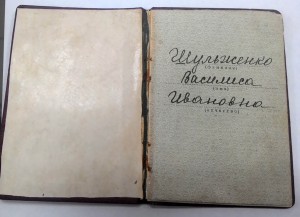 Шульженко
(фамилия)
Василиса
(имя)
Ивановна
(отчество)